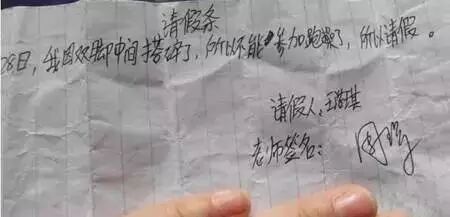 请假条
28日，我因双脚中间了，所以不能参加跑操了，所以请假。
请假人：王琪
老师签名：